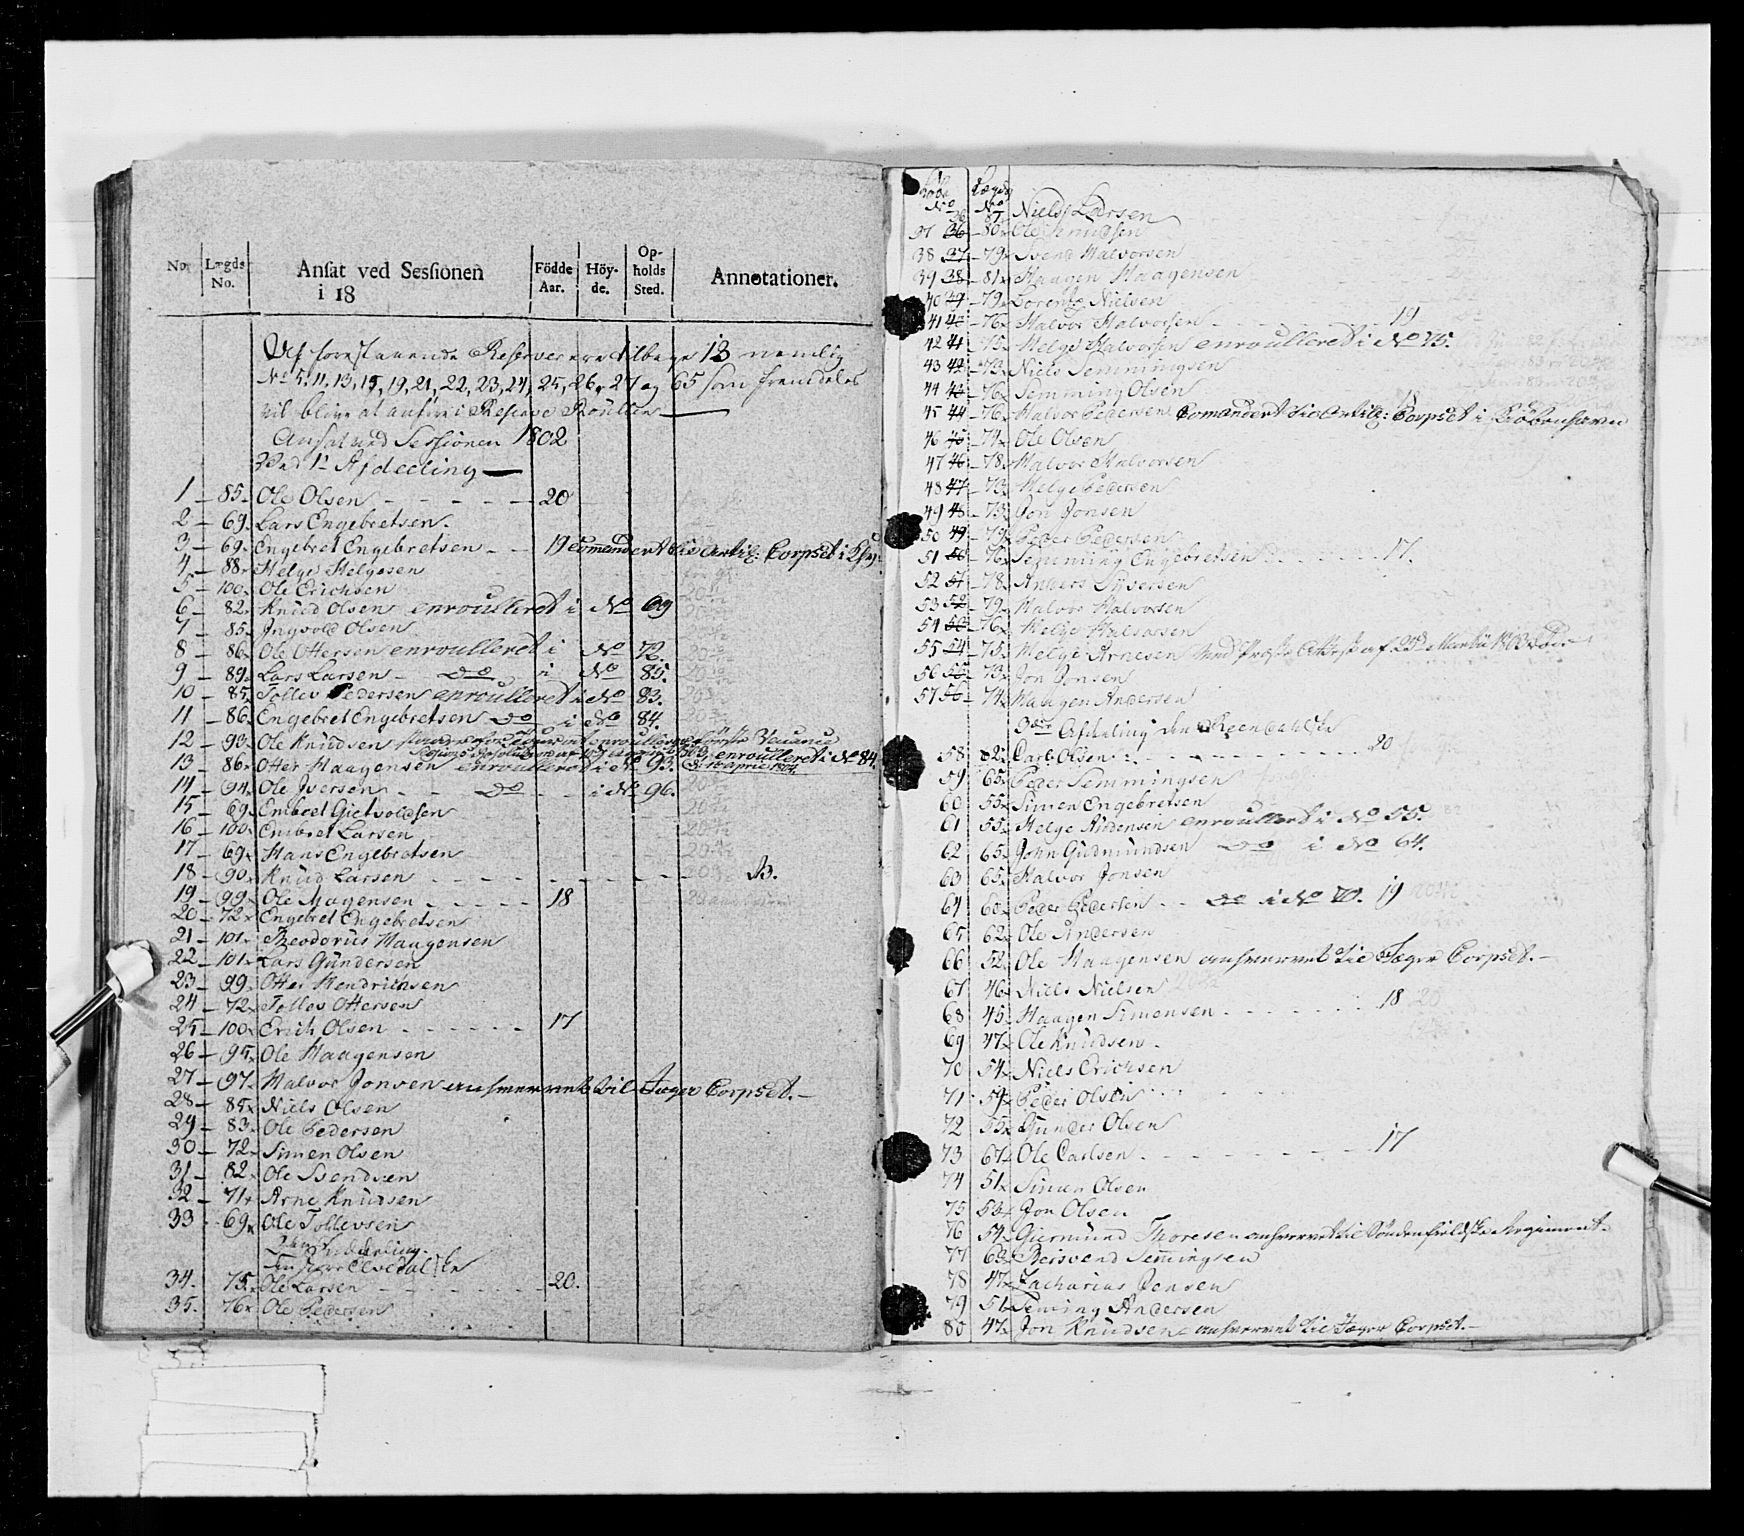 No. Lægds No. Ansat ved Sessionen i 18 Födde Aar. Höyde. Opholds Sted. Annotationer.
Af forestaaende Reserver ere tilbage 13 nemlig
No 5, 11, 13, 15, 19, 21, 22, 23, 24, 25, 26, 27 og 65 som fremdeles
vil blive at anföre i Reserve Roullen
Ansat ved Sessionen 1802
Ved 1te Afdeeling
1 85 Ole Olsen 20
2 69 Lars Engebretsen
3 69 Engebret Engebretsen 19 Comandert til Artil: Corpset i Khvn
4 88 Helge Helgesen
5 100 Ole Erichsen
6 82 Knud Olsen enroulleret i No 69
7 85 Ingvold Olsen
8 86 Ole Ottersen enroulleret i No 72
9 89 Lars Larsen do i No 85.
10 85 Tollev Pedersen enroulleret i No 83.
11 86 Engebret Engebretsen do i No 84.
12 93 Ole Knudsen enroulleret i No 84.
13 86 Otter Haagensen enroulleret i No 93. 1804
14 94 Ole Iversen do i No 96.
15 69 Embret Gietvoldsen
16 100 Embret Larsen
17 69 Hans Engebretsen
18 90 Knud Larsen
19 99 Ole Magensen 18
20 72 Engebret Engebretsen
21 101 Theodorus Haagensen
22 101 Lars Gundersen
23 99 Otter Hendrichsen
24 72 Tolles Ottersen
25 100 Erich Olsen 17
26 95 Ole Haagensen
27 97 Halvor Jonsen anhvervet til Jæger Corpset.
28 85 Niels Olsen
29 83 Ole Pedersen
30 72 Simen Olsen
31 82 Ole Svendsen
32 71 Arne Knudsen
33 69 Ole Tollevsen
2den Afdeeling
34. 75 Ole Larsen 20.
35. 76 Ole Pedersen
No Lægds No
36 87 Niels Larsen
37 36 80 Ole Knudsen
38 37 79 Svend Halvorsen
39 38 81 Haagen Haagensen
40 39 79 Lorentz Nielsen
41 40 76 Halvor Halvorsen 19
42 41 75 Helge Halvorsen enroulleret i No 75.
43 42 73 Niels Semmingsen
44 43 76 Semming Olsen
45 44 76 Halvor Pedersen Comandert til Artil: Corpset i Kiöbenhavn
46 45 74 Ole Olsen
47 46 78 Halvor Halvorsen
48 47 73 Helge Pedersen
49 48 73 Jon Jonsen
50 49 79 Peder Pedersen
51 50 76 Semming Engebretsen 17.
52 51 78 Anders Syversen
53 52 79 Halvor Halvorsen
54 53 76 Helge Halvorsen
55 54 75 Helge Arnesen
56 55 73 Jon Jonsen
57 56 74 Haagen Andersen
3die Afdeling den Reendalske
58 62 Carl Olsen 20
59 65 Peder Semmingsen
60 55 Simen Engebretsen
61 55 Helge enroulleret i No 55.
62 65 John Gudmundsen do i No 64.
63 65 Halvor Jonsen
64 60 Peder Pedersen do i No 70. 19
65 62 Ole Andersen
66 52 Ole Haagensen anhvervet til Jæger Corpset.
67 46 Niels Nielsen
68 45 Haagen Simensen 18
69 47 Ole Knudsen
70 54 Niels Erichsen
71 59 Peder Olsen
72 55 Gunder Olsen
73 67 Ole Carlsen 17
74 51 Simen Olsen
75 53 Jon Olsen
76 54 Giermund Thoresen anhvervet til Söndenfieldske Regiment.
77 63 Reisvend Semingsen
78 47 Zacharias Jensen
79 51 Seming Andersen
80 47 Jon Knudsen anhvervet til Jæger Corpset.